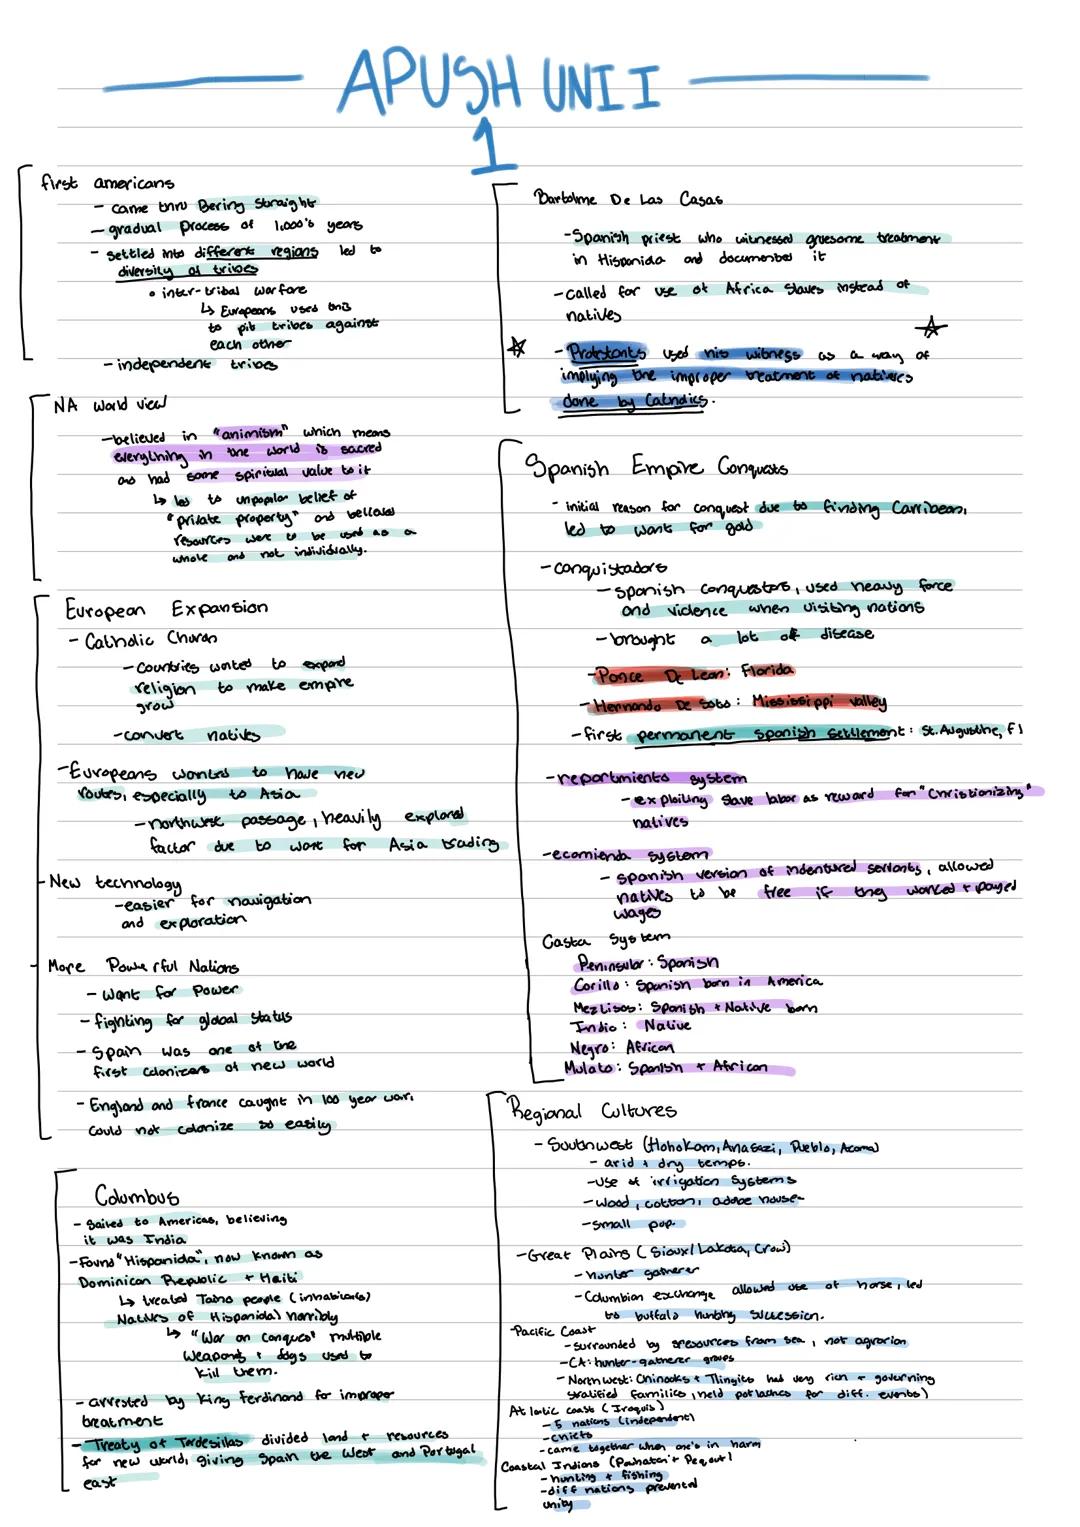 APUSH UNIT
1
first americans
- came thru Bering Straight
- gradual process of 1,000's years
- settled into different regions led to
diversity of tribes
• inter-tribal warfare
↳ Europeans used this
to pit tribes against
each other
- independent tribes
NA world view
- believed in "animism" which means
everything in the world is sacred
and had some spiritual value to it
↳ led to unpopular belief of
"private property" and believed
resources were to be used as a
whole and not individually.
European Expansion
- Catholic Church
- Countries wanted to expand
religion to make empire
grow
- convert natives
- Europeans wanted to have new
routes, especially to Asia
- northwest passage, heavily explored
factor due to want for Asia trading
- New technology
- easier for navigation
and exploration
- More Powerful Nations
- want for power
- fighting for global status
- Spain was one of the
first colonizers of new world
- England and france caught in 100 year war,
could not colonize so easily
Columbus
- Sailed to Americas, believing
it was India
- Found "Hispanida", now known as
Dominican Republic + Haiti
↳ treated Taino people (inhabitants)
Natives of Hispanida) horribly
↳ "War on Conques" multiple
weapons + dogs used to
kill them.
- arrested by King Ferdinand for improper
treatment
- Treaty of Tordesillas divided land + resources
for new world, giving Spain the West and Portugal
east
Bartolme De Las Casas
- Spanish priest who witnessed gruesome treatment
in Hispanida and documented it
- called for use of Africa Slaves instead of
natives
- Protestants used his witness as a way of
implying the improper treatment of natives
done by Catholics.
Spanish Empire Conquests
- initial reason for conquest due to finding Carribean,
led to want for gold
- conquistadors
- spanish conquestors, used heavy force
and violence when visiting nations
- brought a lot of disease
- Ponce De Leon: Florida
- Hernando De Soto: Mississippi valley
- first permanent spanish settlement: St. Augustine, Fl
- repartmiento system
- exploiting slave labor as reward for "Christionizing"
natives
- ecomienda system
- spanish version of indentured servants, allowed
natives to be free if they worked + payed
wages
Casta System
Peninsular: Spanish
Corillo: Spanish born in America
Meztisos: Spanish + Native born
Indio: Native
Negro: African
Mulato: Spanish + African
Regional Cultures
- Southwest (Hohokam, Anasazi, Pueblo, Acoma)
- arid + dry temps.
- use of irrigation systems
- wood, cotton, adobe house-
- small pop.
- Great Plains (Sioux/Lakota, Crow)
- hunter gatherer
- Columbian exchange allowed use of horse, led
to buffalo hunting succession.
- Pacific Coast
- surrounded by sresources from sea, not agrarian
- CA: hunter-gatherer groups
- Northwest: Chinooks + Tlingits had very rich + governing
stratified families, held potlaches for diff. events)
Atlatic coast (Iroquis)
- 5 nations (independent)
- chiefs
- came together when one's in harm
Coastal Indians (Powhatan + Pequot)
- hunting + fishing
- diff nations prevented
unity